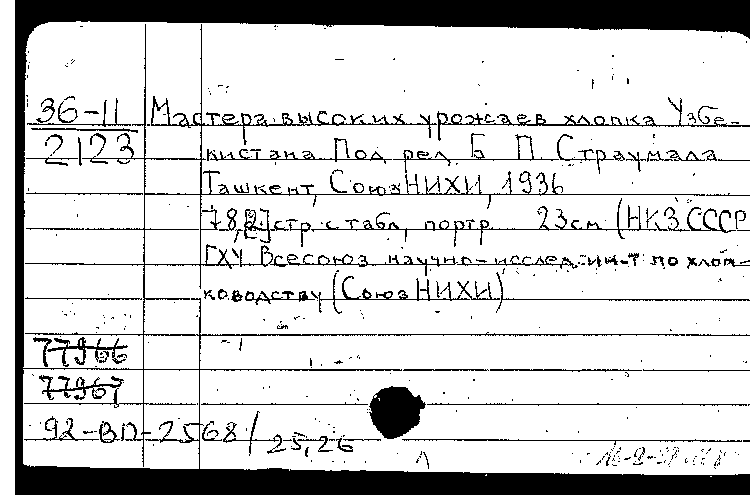 36-11 Мастера высоких урожаев хлопка Узбе-
2123 кистана. Под ред. Б. П. Страумала
Ташкент, СоюзНИХИ, 1936
78,[2]стр. с табл, портр. 23см (НКЗ СССР
ГХУ. Всесоюз. научно-исслед. ин-т по хлоп-
ководству (СоюзНИХИ)
77966
77967
92-ВП-2568/25,26